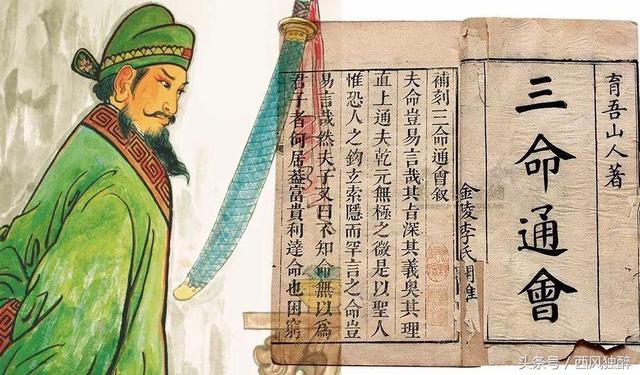 育吾山人著
三命通會
金陵李氏
補刻三命通會叙
夫命豈易言哉其旨深其義奧其理
直上通夫乾元無極之微是以聖人
惟恐人之鈎玄索隱而罕言之命豈
易言哉然夫子又曰不知命無以為
君子者何居葢富貴利達命也困窮
头条号 / 西风独醉